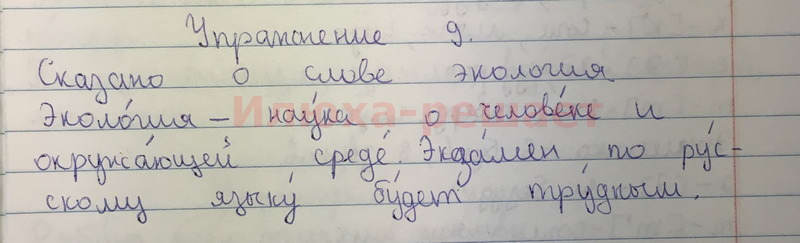 Упражнение 9.
Сказано о слове экология
Эколо́гия – нау́ка о челове́ке и
окружа́ющей среде́. Экза́мен по ру́с-
скому языку́ бу́дет тру́дным.
Илюха-решает